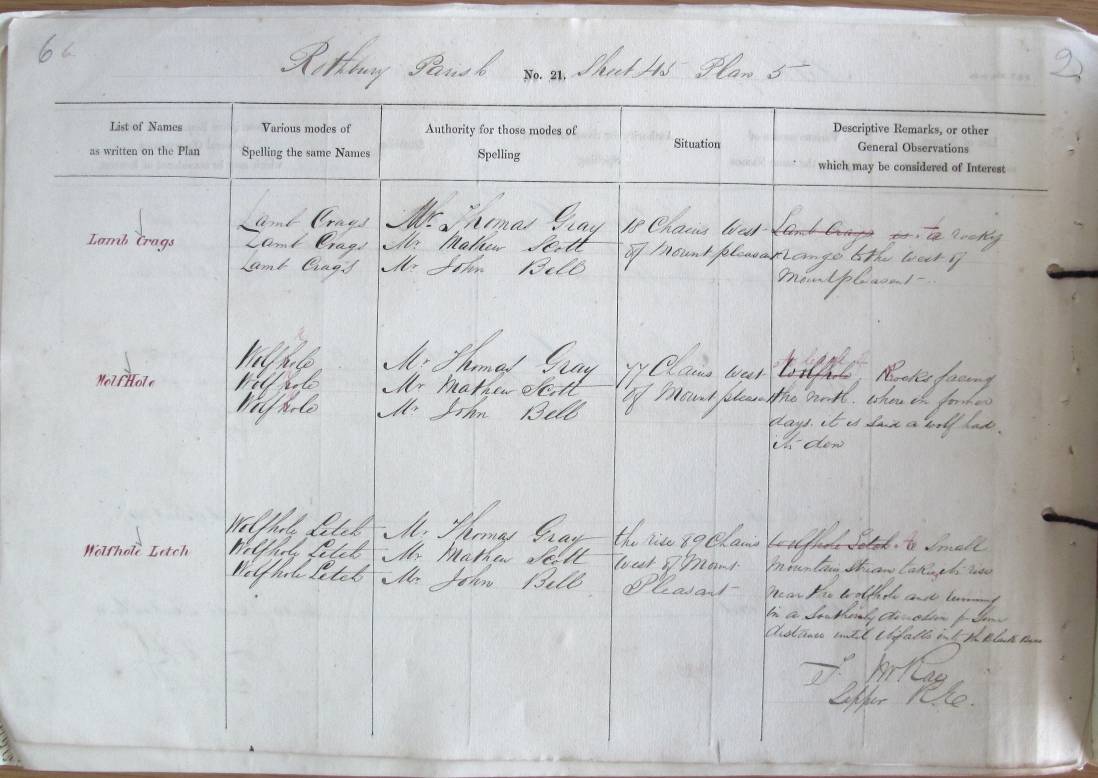 6
2
Rothbury Parish No. 21. Sheet 45 Plan 5
List of Names
as written on the Plan
Various modes of
Spelling the same Names
Authority for those modes of
Spelling
Situation
Descriptive Remarks, or other
General Observations
which may be considered of Interest
Lamb Crags
Lamb Crags
Lamb Crags
Lamb Crags
Mr. Thomas Gray
Mr. Mathew Scott
Mr. John Bell
18 Chains West
of Mount pleasant
Lamb Crags is a rocky
range to the west of
Mountpleasent
Wolf Hole
Wolfhole
Wolfhole
Wolfhole
Mr. Thomas Gray
Mr Mathew Scott
Mr. John Bell
77 Chains West
of Mount pleasant
Wolfhole Rocks facing
the north. where in former
days. it is said a wolf had
its den
Wolfhole Letch
Wolfhole Letch
Wolfhole Letch
Wolfhole Letch
Mr. Thomas Gray
Mr Mathew Scott
Mr. John Bell
the rise 89 Chains
West of Mount
Pleasant
Wolfhole Letch a Small
Mountain Stream taking its rise
near the wolfhole and running
in a Southerly direction for Some
distance until it falls into the Black Burn
Sapper R.E.